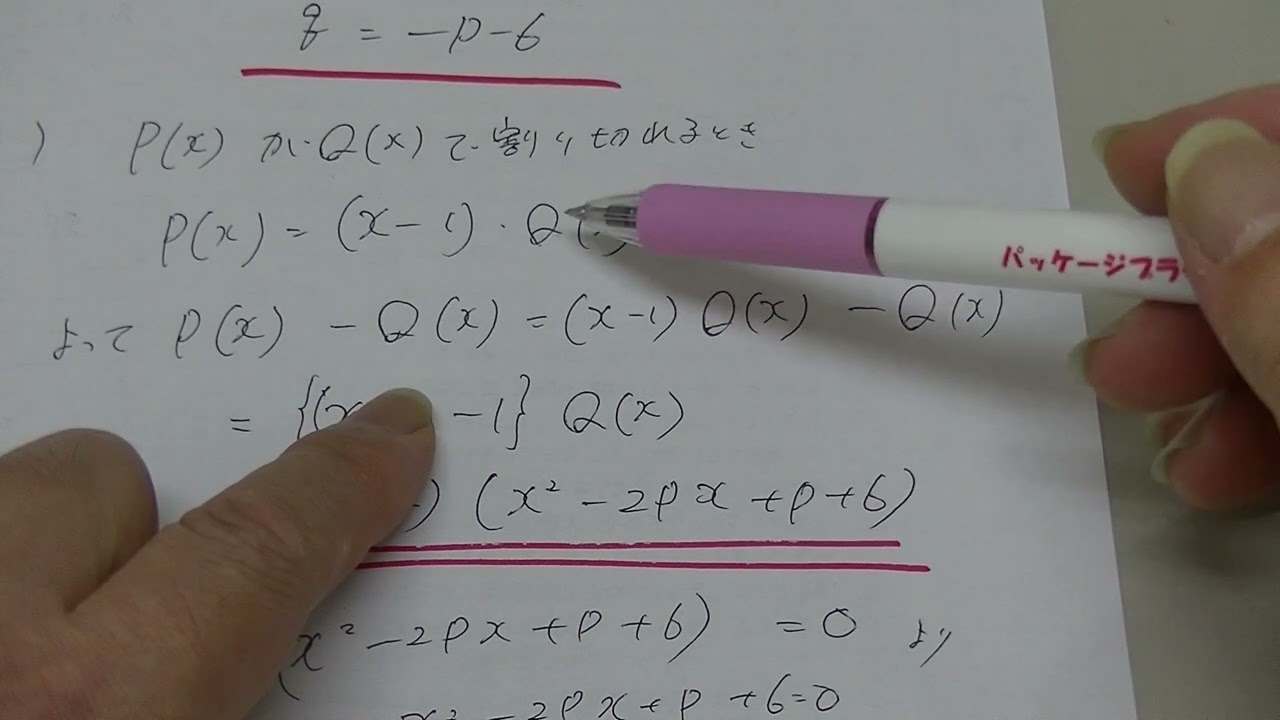 q = -p-6
) P(x) が Q(x) で割り切れるとき
P(x) = (x-1)・Q(
パッケージプラ
よって P(x) - Q(x) = (x-1) Q(x) - Q(x)
= {(x -1} Q(x)
) (x² - 2px + p + 6)
x² - 2px + p + 6) = 0 より
x² - 2px + p + 6 = 0